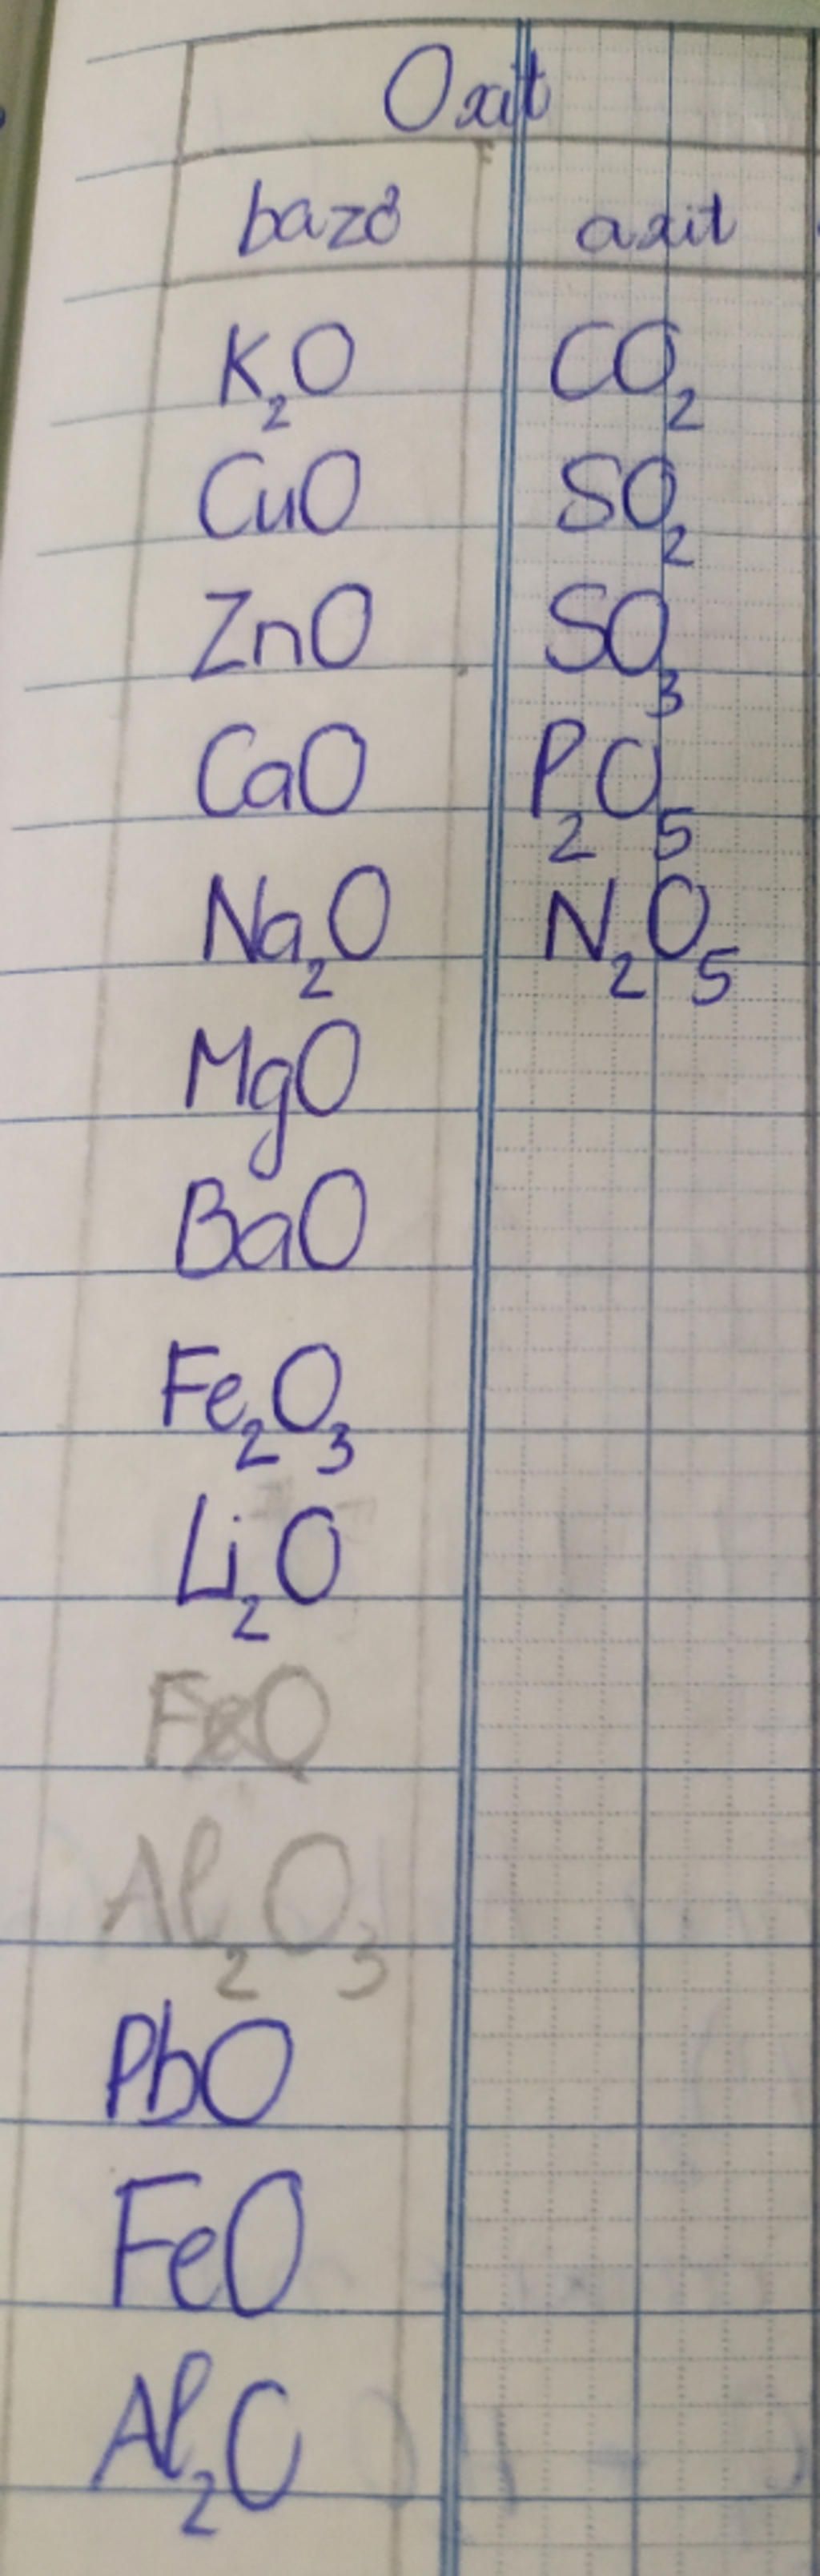 Oxit
bazơ axit
K₂O CO₂
CuO SO₂
ZnO SO₃
CaO P₂O₅
Na₂O N₂O₅
MgO
BaO
Fe₂O₃
Li₂O
FeO
Al₂O₃
PbO
FeO
Al₂O